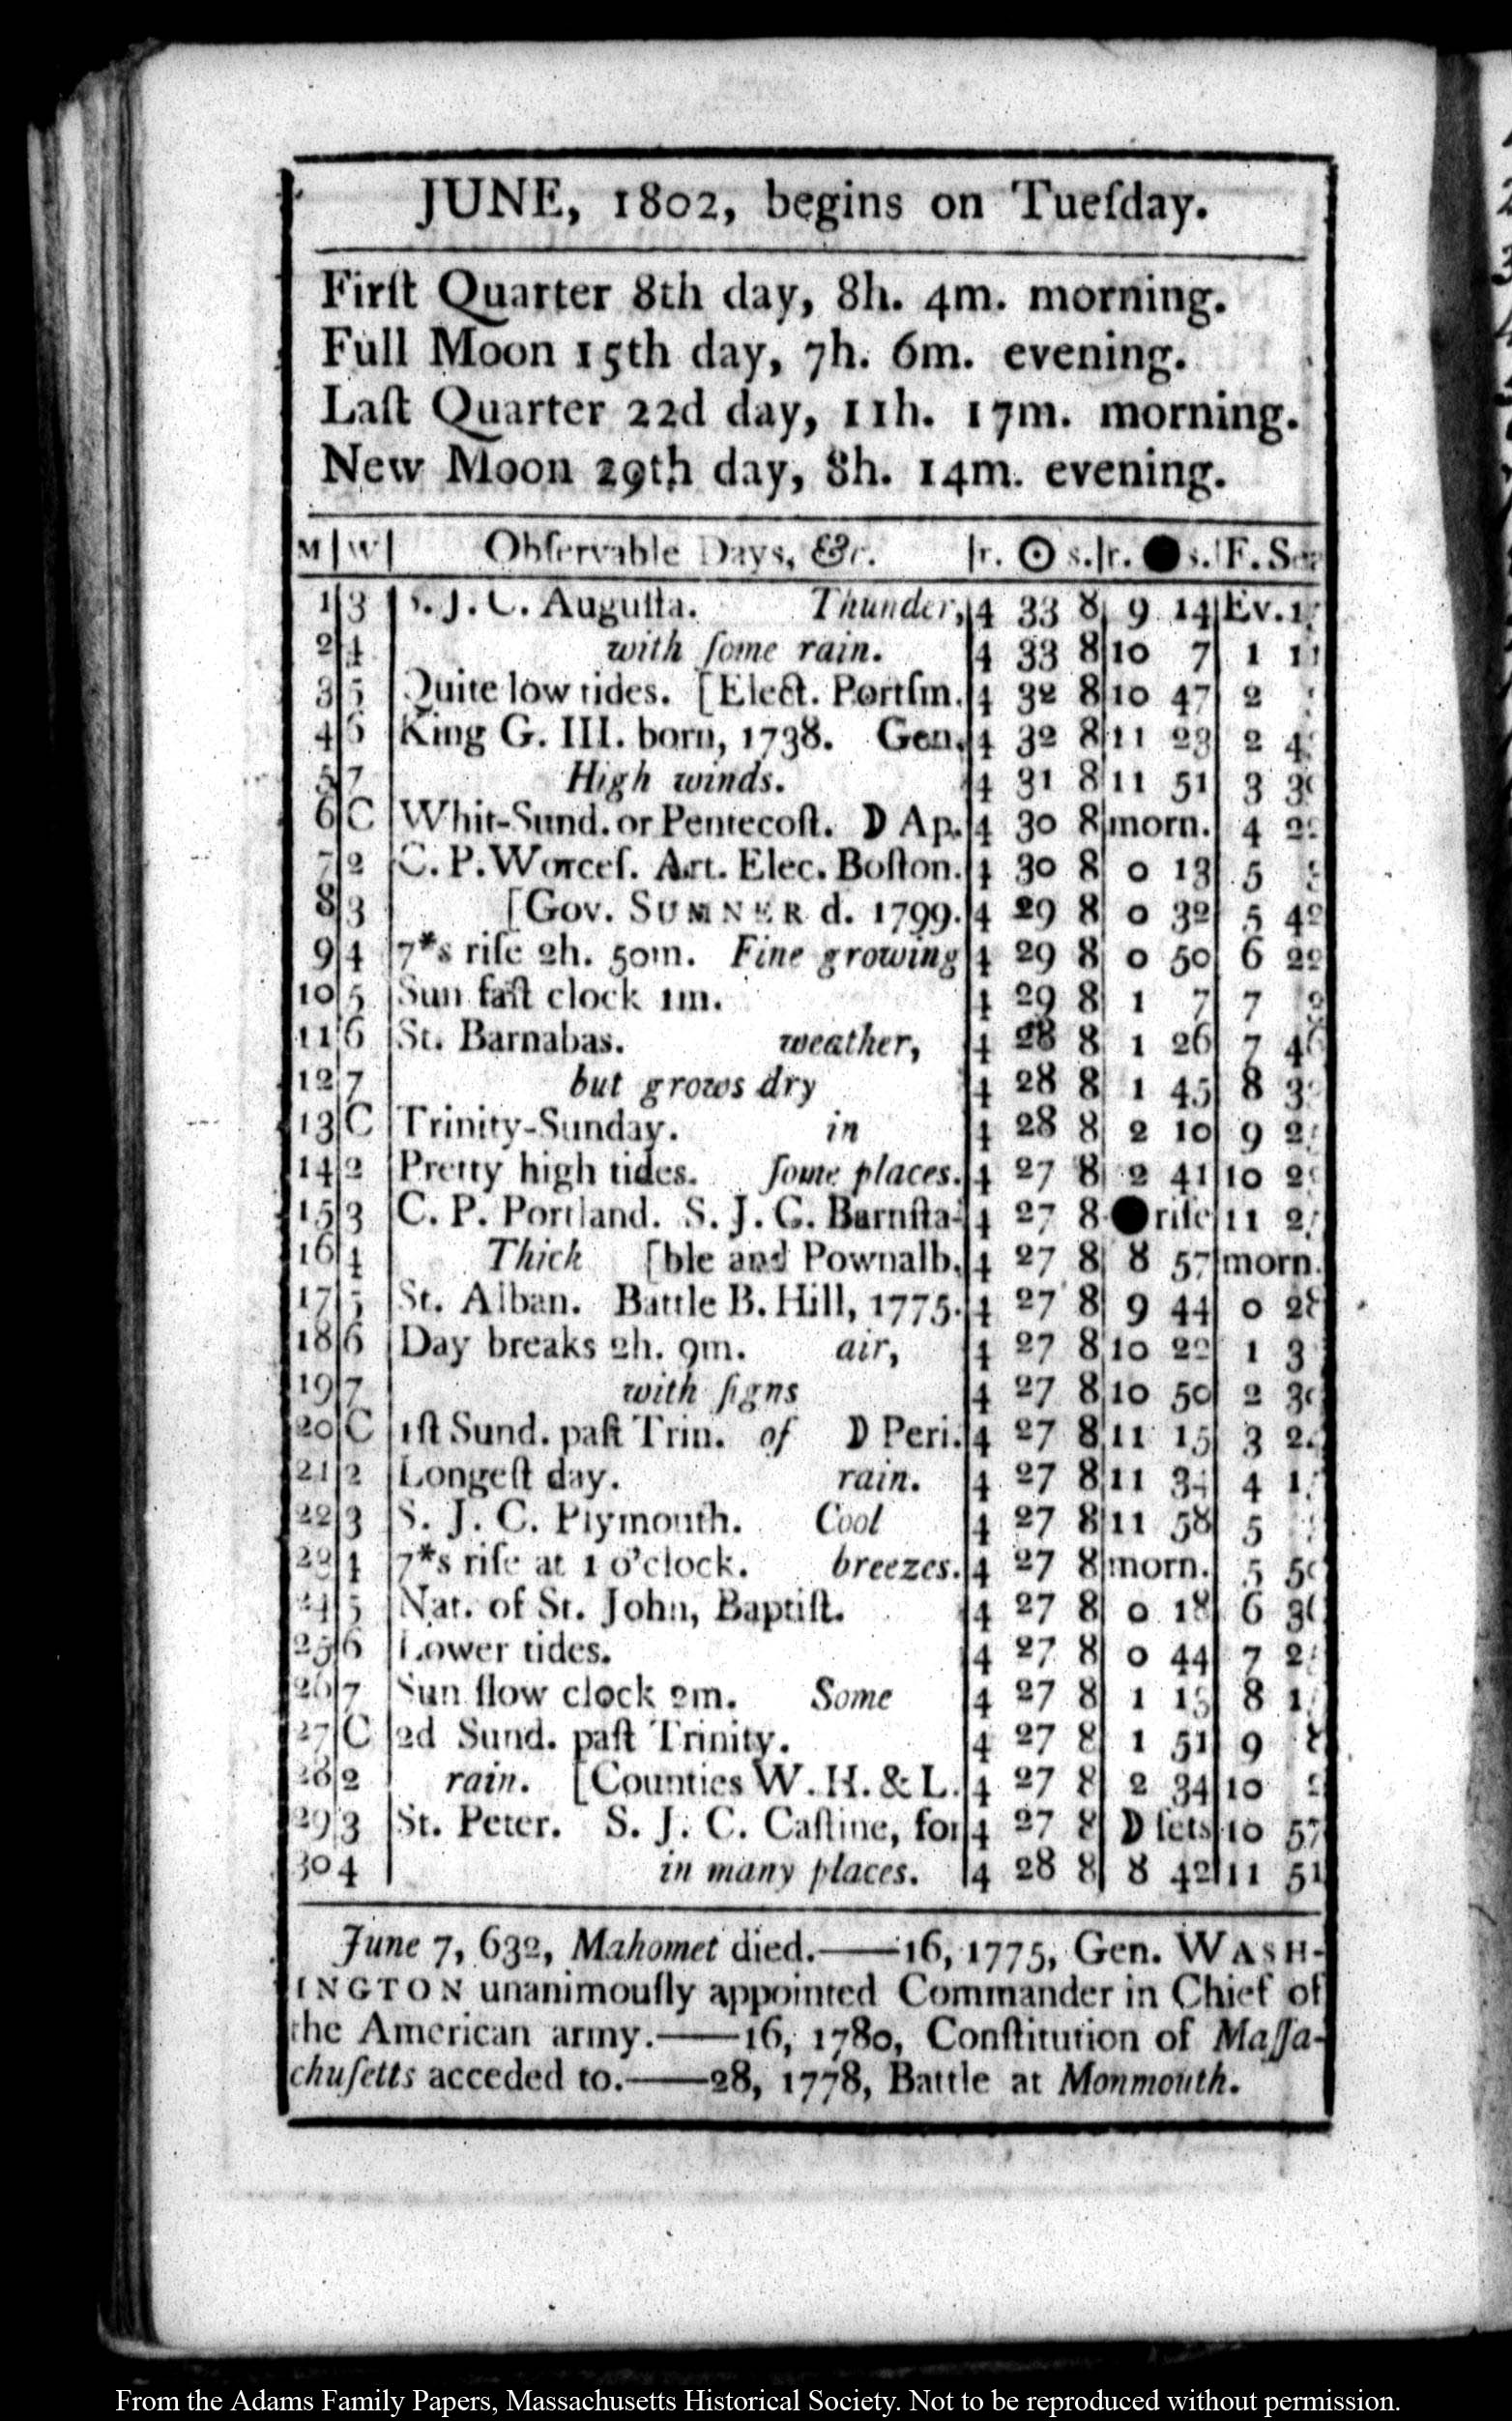 JUNE, 1802, begins on Tueſday.
Firſt Quarter 8th day, 8h. 4m. morning.
Full Moon 15th day, 7h. 6m. evening.
Laſt Quarter 22d day, 11h. 17m. morning.
New Moon 29th day, 8h. 14m. evening.
M|W| Obſervable Days, &c. |r. ☉ s.|r. ● s.|F. Sea
1|3 |S. J. C. Auguſta. Thunder,|4 33 8| 9 14|Ev.
2|4 with ſome rain. |4 33 8|10 7| 1
3|5 |Quite low tides. [Elect. Portſm.|4 32 8|10 47| 2
4|6 |King G. III. born, 1738. Gen.|4 32 8|11 23| 2
5|7 High winds. |4 31 8|11 51| 3
6|C |Whit-Sund. or Pentecoſt. D Ap.|4 30 8|morn.| 4
7|2 |C. P. Worceſ. Art. Elec. Boſton.|4 30 8| 0 13| 5
8|3 | [Gov. SUMNER d. 1799.|4 29 8| 0 32| 5 42
9|4 |7*s riſe 2h. 50m. Fine growing|4 29 8| 0 50| 6 22
10|5 |Sun faſt clock 1m. |4 29 8| 1 7| 7
11|6 |St. Barnabas. weather, |4 28 8| 1 26| 7 46
12|7 but grows dry |4 28 8| 1 45| 8
13|C |Trinity-Sunday. in |4 28 8| 2 10| 9
14|2 |Pretty high tides. ſome places.|4 27 8| 2 41|10
15|3 |C. P. Portland. S. J. C. Barnſta-|4 27 8|●riſe|11
16|4 Thick [ble and Pownalb.|4 27 8| 8 57|morn.
17|5 |St. Alban. Battle B. Hill, 1775.|4 27 8| 9 44| 0 28
18|6 |Day breaks 2h. 9m. air, |4 27 8|10 22| 1
19|7 with ſigns |4 27 8|10 50| 2
20|C |1ſt Sund. paſt Trin. of D Peri.|4 27 8|11 15| 3
21|2 |Longeſt day. rain. |4 27 8|11 34| 4
22|3 |S. J. C. Plymouth. Cool |4 27 8|11 58| 5
23|4 |7*s riſe at 1 o'clock. breezes.|4 27 8|morn.| 5
24|5 |Nat. of St. John, Baptiſt. |4 27 8| 0 18| 6
25|6 |Lower tides. |4 27 8| 0 44| 7
26|7 |Sun ſlow clock 2m. Some |4 27 8| 1 15| 8
27|C |2d Sund. paſt Trinity. |4 27 8| 1 51| 9
28|2 | rain. [Counties W. H. & L.|4 27 8| 2 34|10
29|3 |St. Peter. S. J. C. Caſtine, for|4 27 8| D ſets|10 57
30 4 | in many places. |4 28 8| 8 42|11 51
June 7, 632, Mahomet died.——16, 1775, Gen. WASH-
INGTON unanimouſly appointed Commander in Chief of
the American army.——16, 1780, Conſtitution of Maſſa-
chuſetts acceded to.——28, 1778, Battle at Monmouth.
From the Adams Family Papers, Massachusetts Historical Society. Not to be reproduced without permission.